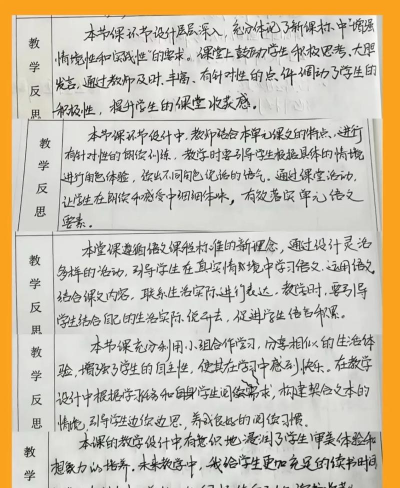 教学反思
本节课环节设计层层深入，充分体现了新课标中"增强
情境性和实践性"的要求。课堂上鼓励学生积极思考、大胆
发言，通过教师及时、丰富、有针对性的点评调动了学生的
积极性，提升学生的课堂收获感。
教学反思
本节课环节设计中，教师结合本单元课文的特点，进行
有针对性的朗读训练，教学时要引导学生根据具体的情境
进行角色体验，读出不同角色说话的语气。通过课堂活动，
让学生在朗读和感受中细细体味，有效落实单元语文
要素。
教学反思
本堂课遵循语文课程标准的新理念，通过设计灵活
多样的活动，引导学生在真实情境中学习语文、运用语文，
结合课文内容，联系生活实际进行表达，教学时，要引导
学生结合自己的生活实际说开去，促进学生语言积累。
教学反思
本节课充分利用小组合作学习，分享相似的生活体
验，增强了学生的自主性，使其在学习中感到快乐。在教学
设计中根据学习任务和自身学生阅读需求，构建契合文本的
情境，引导学生边读边思，养成良好的阅读习惯。
教学
本课的教学设计中有意识地浸润了学生审美体验和
想象力的培养。未来教学中，我给学生更加充足的读书时间